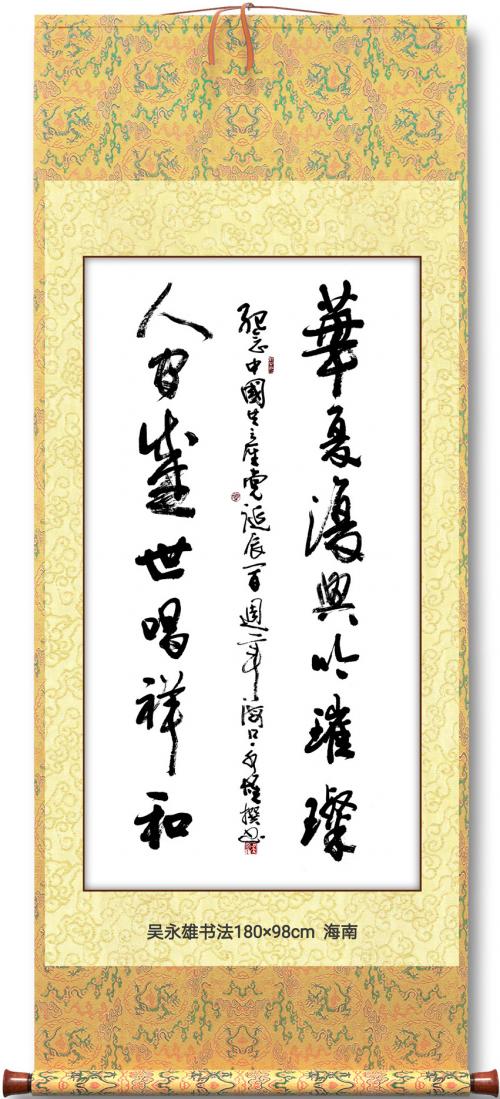 華夏復興吟璀璨
紀念中國共產党誕辰一百週年海口永雄撰书
人间盛世唱祥和
吴永雄书法180×98cm 海南